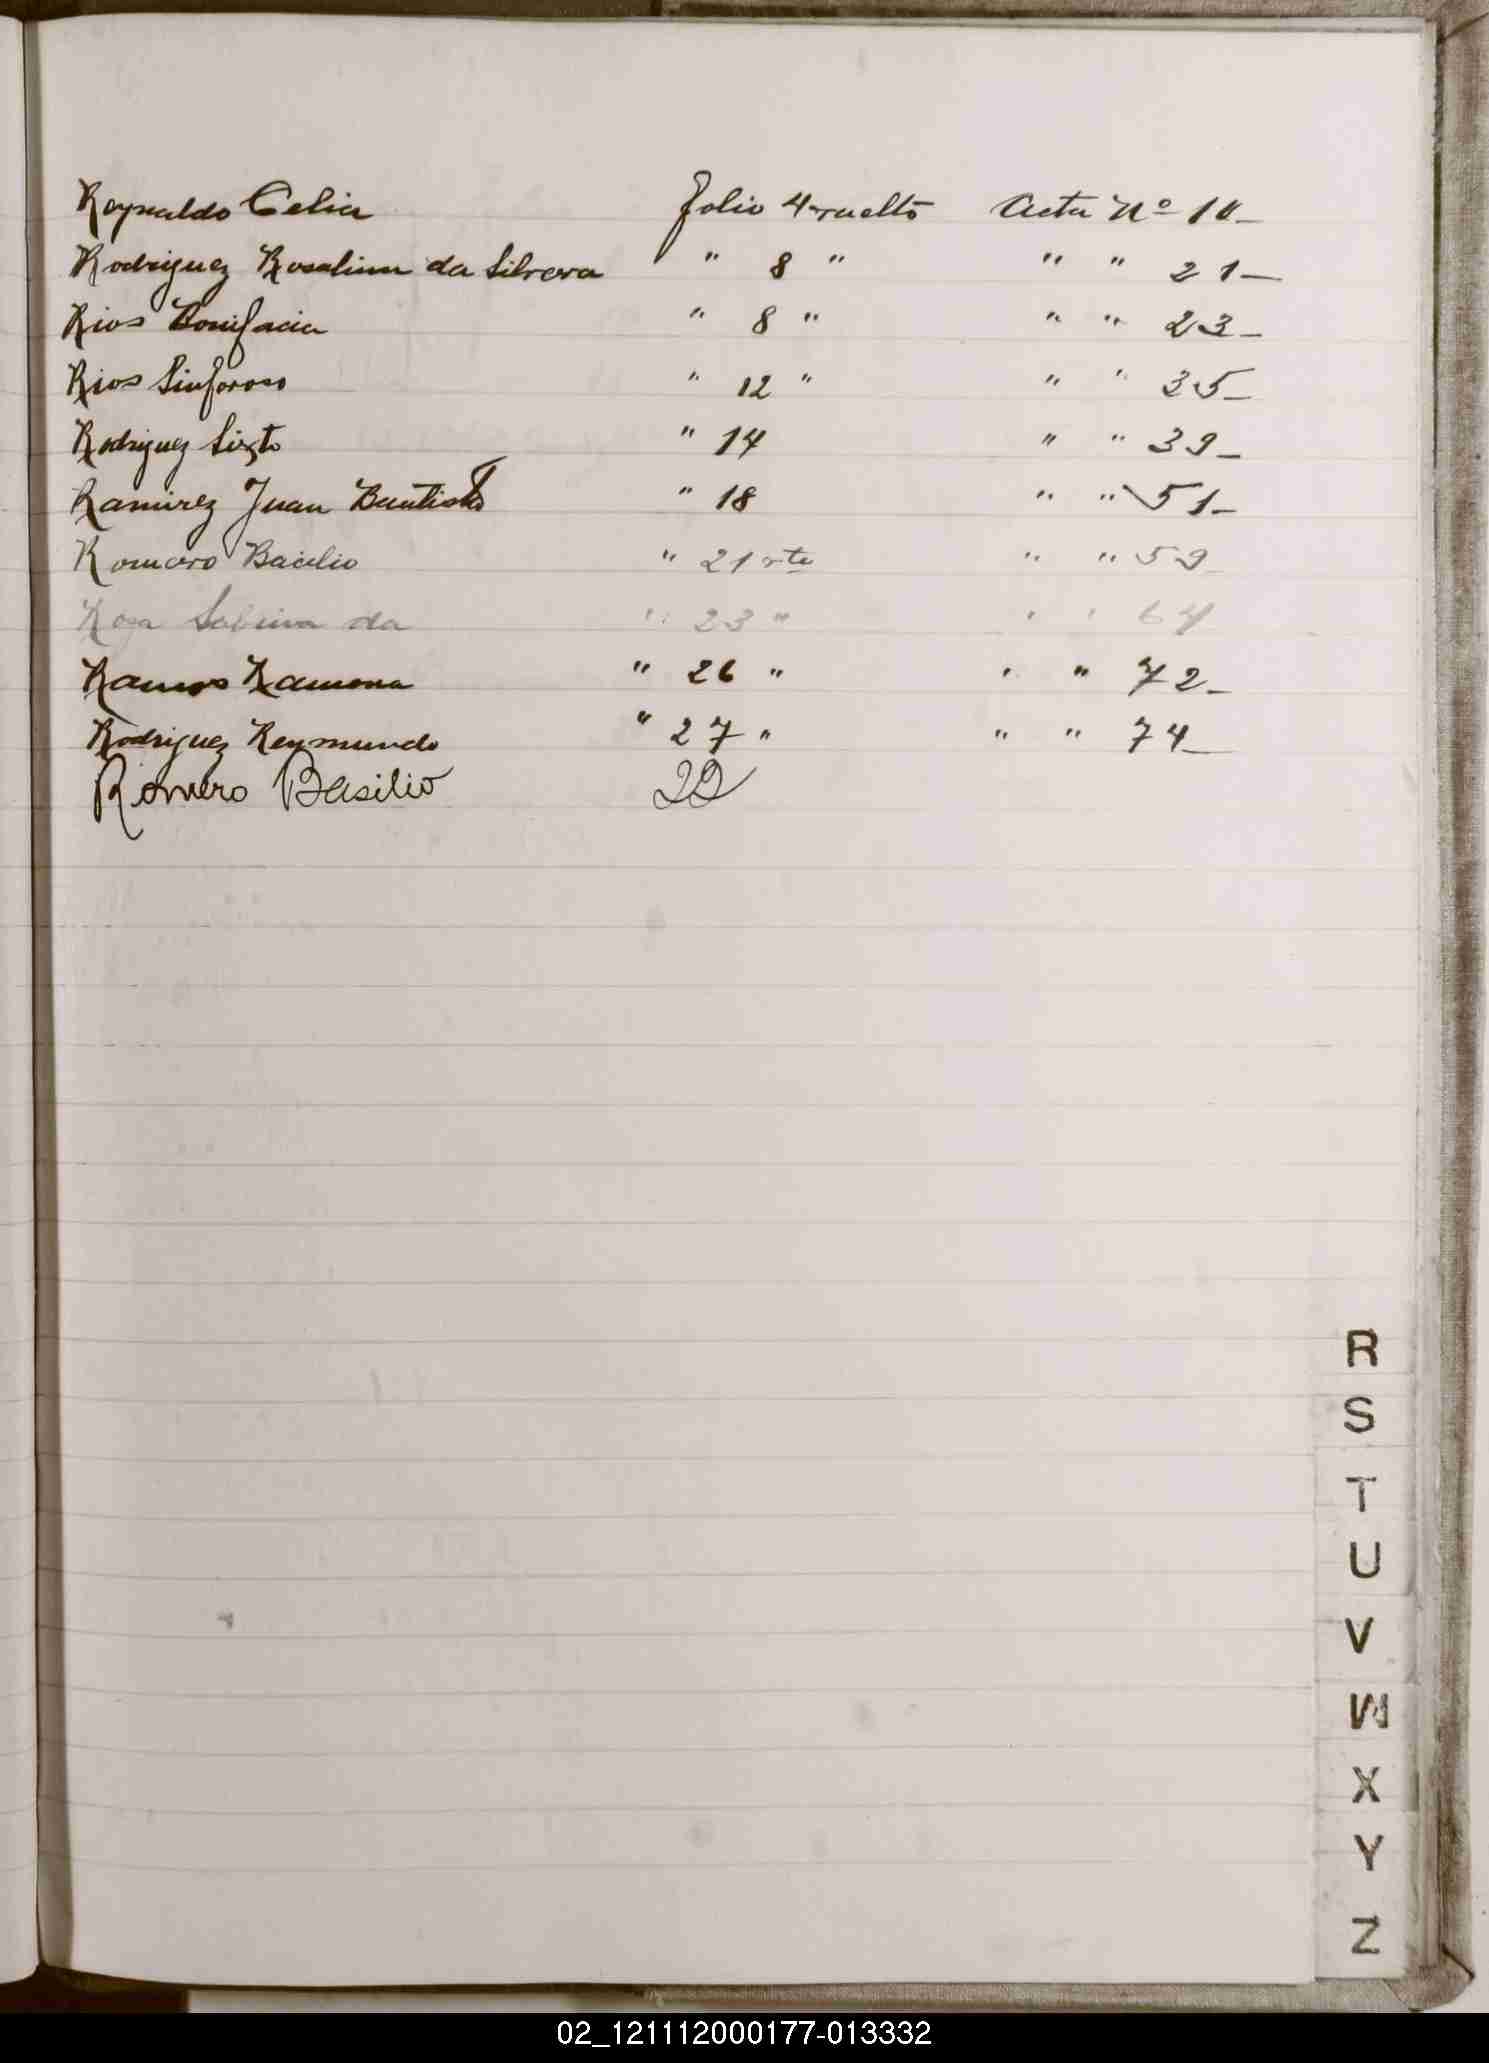 Reynaldo Celia Folio 4 vuelto Acta Nº 10
Rodriguez Rosalina da Silvera " 8 " " " 21
Rios Bonifacia " 8 " " " 23
Rios Sinforoso " 12 " " " 35
Rodriguez Sixto " 14 " " 39
Ramirez Juan Bautista " 18 " " 51
Romero Bacilio " 21 vto " " 59
Rosa Sabina da " 23 " " " 64
Ramos Ramona " 26 " " " 72
Rodriguez Reymundo " 27 " " " 74
Romero Basilio 22
R
S
T
U
V
W
X
Y
Z
02_121112000177-013332